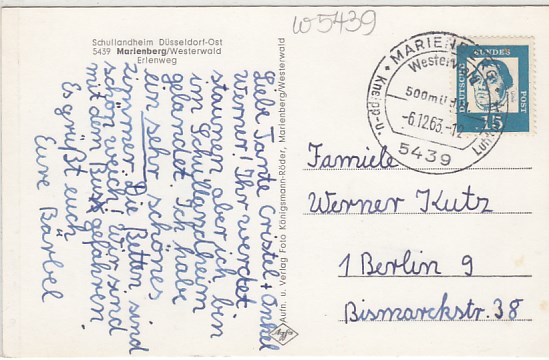 W5439
Schullandheim Düsseldorf-Ost
5439 Marienberg/Westerwald
Erlenweg
Liebe Tante Cristel + Onkel
Werner! Ihr werdet
staunen aber ich bin
im Schullandheim
gelandet. Ich habe
ein sehr schönes
zimmer. Die Betten sind
schön weich! Wir sind
mit dem Bus gefahren
Es grüßt euch
Eure Bärbel
Aufn. u. Verlag Foto Königsmann-Röder, Marienberg/Westerwald
Agfa
MARIENBERG
Westerwald
500m ü.d.
-6.12.63.-12
5439
Kneipp- u.
Luft
DEUTSCHE BUNDESPOST
15
Famiele
Werner Kutz
1 Berlin 9
Bismarckstr. 38